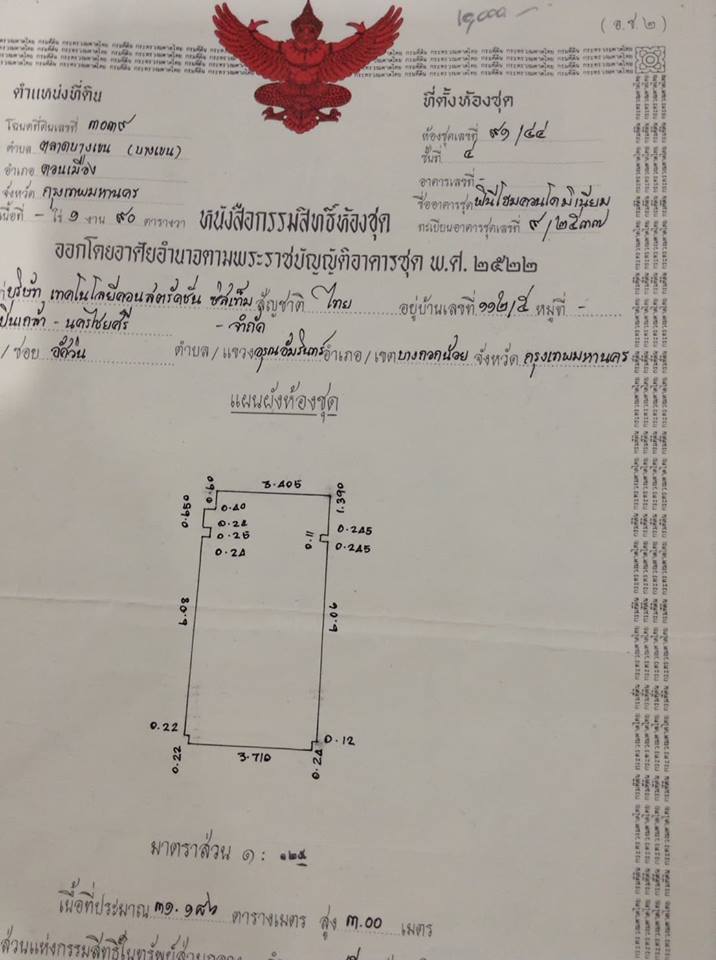 ๒๐๐๐ –
(อ.ช.๒)
ตำแหน่งที่ดิน
โฉนดที่ดินเลขที่ ๓๐๓๙
ตำบล ตลาดบางเขน (บางเขน)
อำเภอ ดอนเมือง
จังหวัด กรุงเทพมหานคร
เนื้อที่ - ไร่ ๑ งาน ๙๐ ตารางวา
ที่ตั้งห้องชุด
ห้องชุดเลขที่ ๙๑/๔๔
ชั้นที่ ๔
อาคารเลขที่ -
ชื่ออาคารชุด พินีโฮมคอนโดมิเนียม
ทะเบียนอาคารชุดเลขที่ ๙/๒๕๓๗
หนังสือกรรมสิทธิ์ห้องชุด
ออกโดยอาศัยอำนาจตามพระราชบัญญัติอาคารชุด พ.ศ. ๒๕๒๒
บริษัท เทคโนโลยีคอนสตรัคชั่น ซิสเท็ม สัญชาติ ไทย อยู่บ้านเลขที่ ๑๑๒/๕ หมู่ที่ -
ปิ่นเกล้า - นครไชยศรี - จำกัด
/ ซอย ตำบล/แขวง อรุณอัมรินทร์ อำเภอ/เขต บางกอกน้อย จังหวัด กรุงเทพมหานคร
แผนผังห้องชุด
0.60
3.405
1.390
0.650
0.40
0.24
0.25
0.24
0.11
0.245
0.245
6.08
6.06
0.22
0.22
3.710
0.24
0.12
มาตราส่วน ๑ : ๑๒๕
เนื้อที่ประมาณ ๓๑.๑๘๖ ตารางเมตร สูง ๓.00 เมตร
ส่วนแห่งกรรมสิทธิ์ในทรัพย์ส่วนกลาง